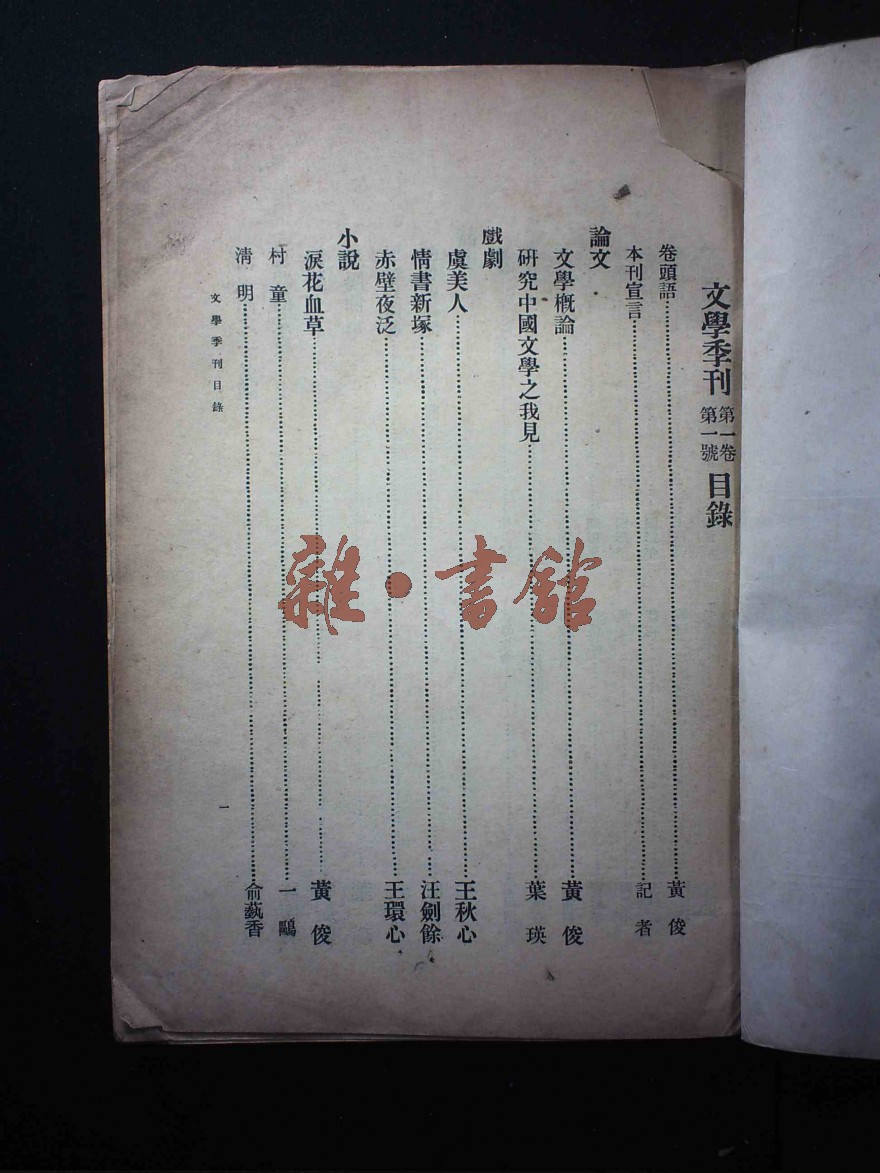 文學季刊 第一卷 第一號 目錄
卷頭語……黃俊
本刊宣言……記者
論文
文學概論……黃俊
研究中國文學之我見……葉瑛
戲劇
虞美人……王秋心
情書新塚……汪劍餘
赤壁夜泛……王環心
小說
淚花血草……黃俊
村童……一鷗
清明……俞藝香
文學季刊目錄
一
雜·書館